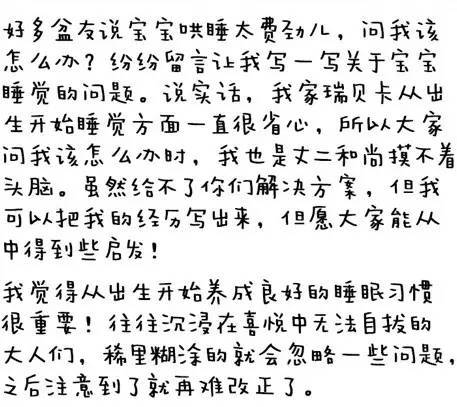 好多盆友说宝宝哄睡太费劲儿，问我该
怎么办？纷纷留言让我写一写关于宝宝
睡觉的问题。说实话，我家瑞贝卡从出
生开始睡觉方面一直很省心，所以大家
问我该怎么办时，我也是丈二和尚摸不着
头脑。虽然给不了你们解决方案，但我
可以把我的经历写出来，但愿大家能从
中得到些启发！
我觉得从出生开始养成良好的睡眠习惯
很重要！往往沉浸在喜悦中无法自拔的
大人们，稀里糊涂的就会忽略一些问题，
之后注意到了就再难改正了。